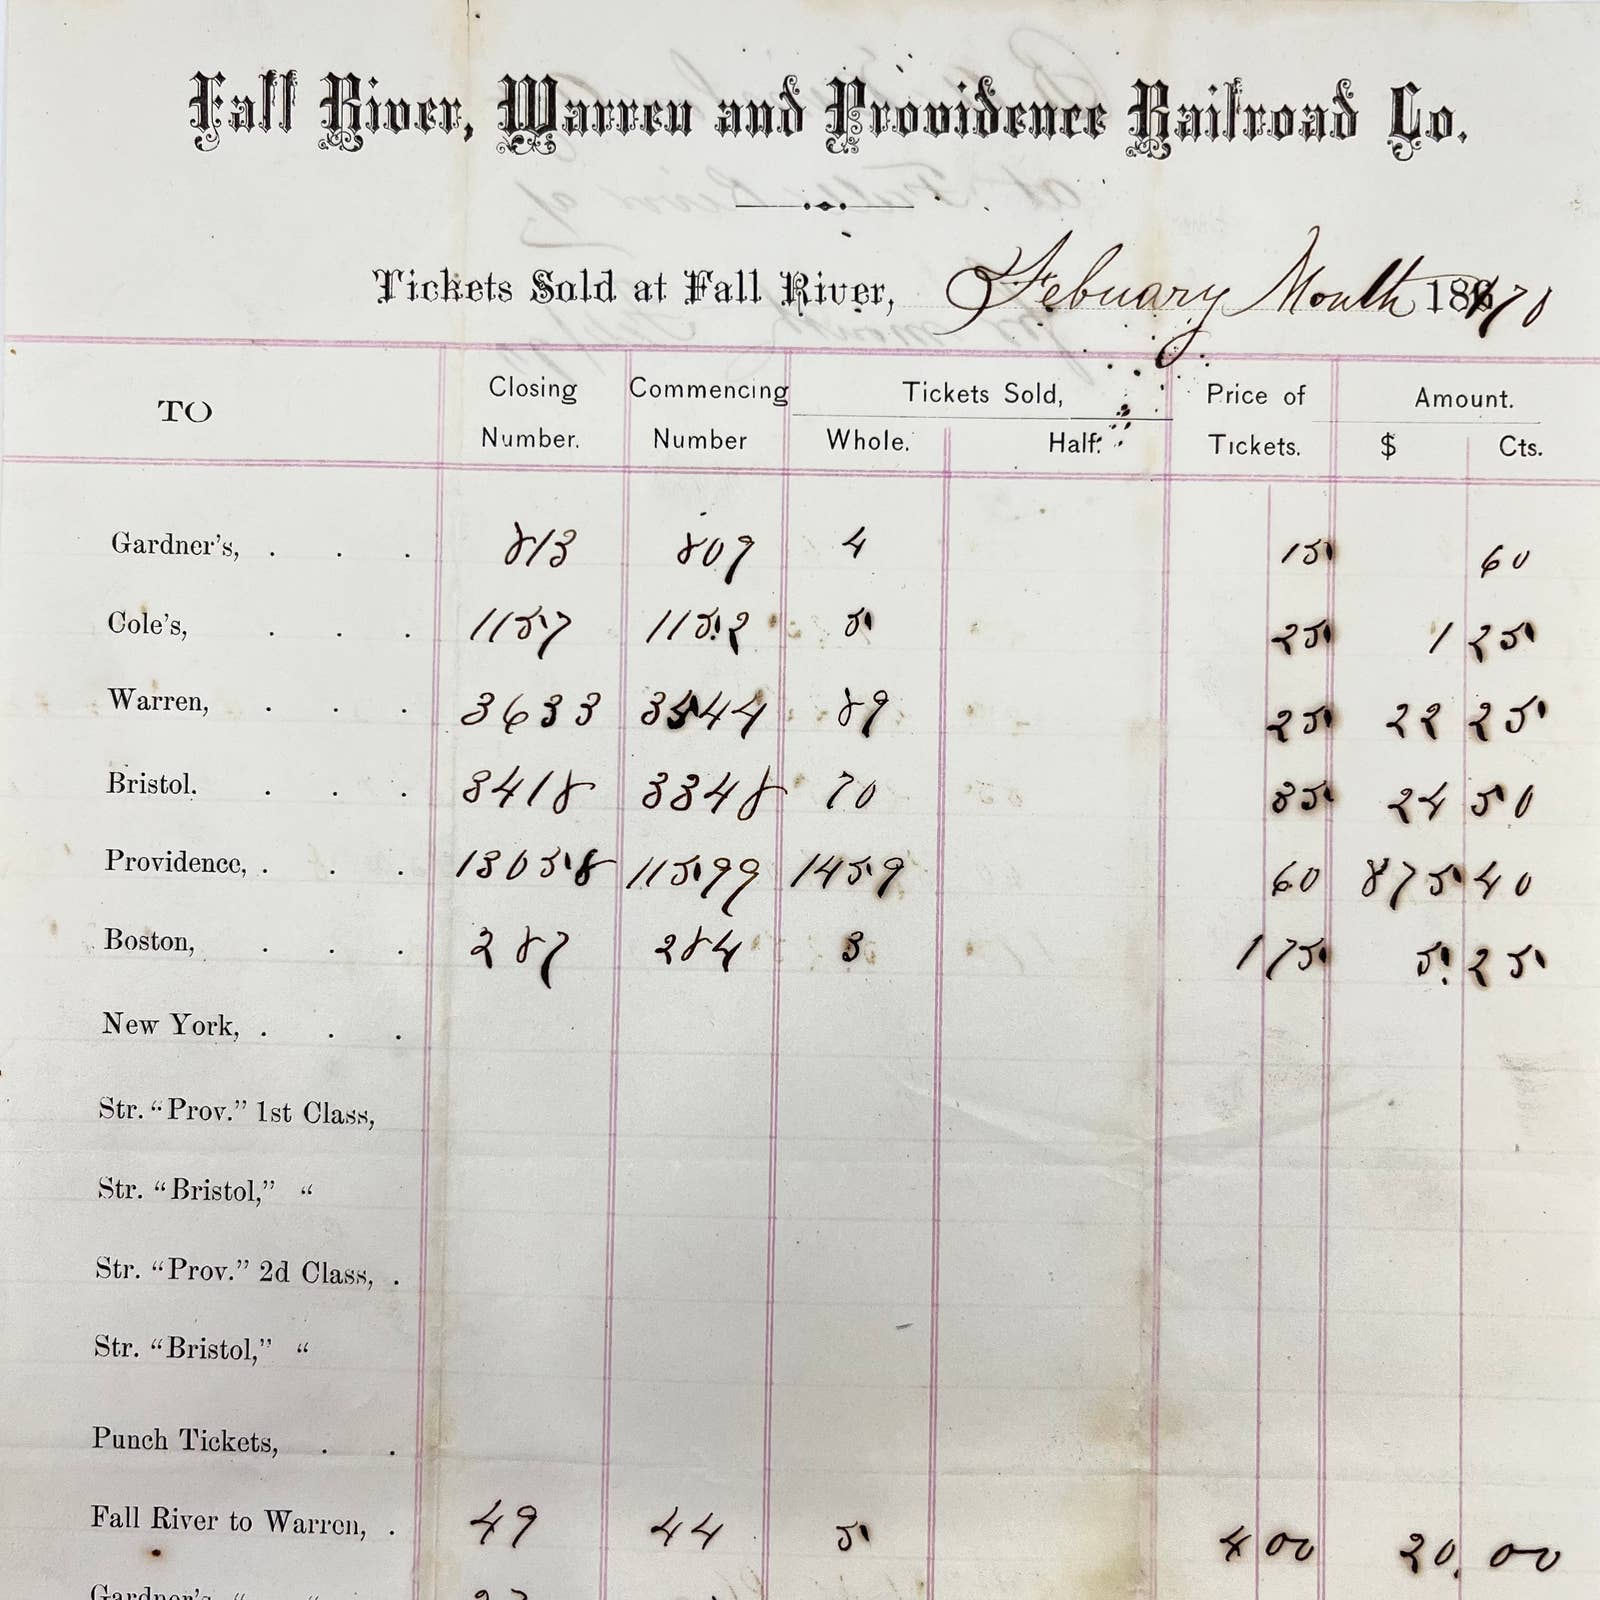 Fall River, Warren and Providence Railroad Co.
Tickets Sold at Fall River, Febuary Month 1870
TO Closing Number. Commencing Number Tickets Sold, Whole. Half. Price of Tickets. Amount. $ Cts.
Gardner's, . . . 813 809 4 15 60
Cole's, . . . 1157 1152 5 25 1 25
Warren, . . . 3633 3544 89 25 22 25
Bristol. . . . 3418 3348 70 35 24 50
Providence, . . . 13058 11599 1459 60 875 40
Boston, . . . 287 284 3 1 75 5. 25
New York, . . .
Str. "Prov." 1st Class,
Str. "Bristol," "
Str. "Prov." 2d Class, .
Str. "Bristol," "
Punch Tickets, . .
Fall River to Warren, . 49 44 5 4 00 20. 00
Gardner's " "